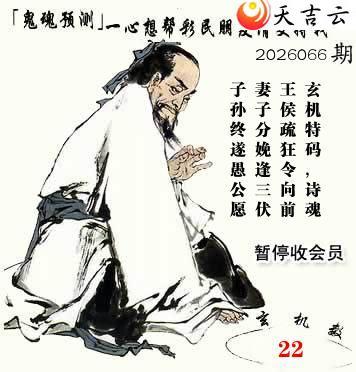 天吉云
「鬼魂预测」一心想帮彩民朋
2026066期
玄机特码，诗魂
王侯疏狂令向前
妻子分娩逢三伏
子孙终遂愚公愿
暂停收会员
玄机数
22